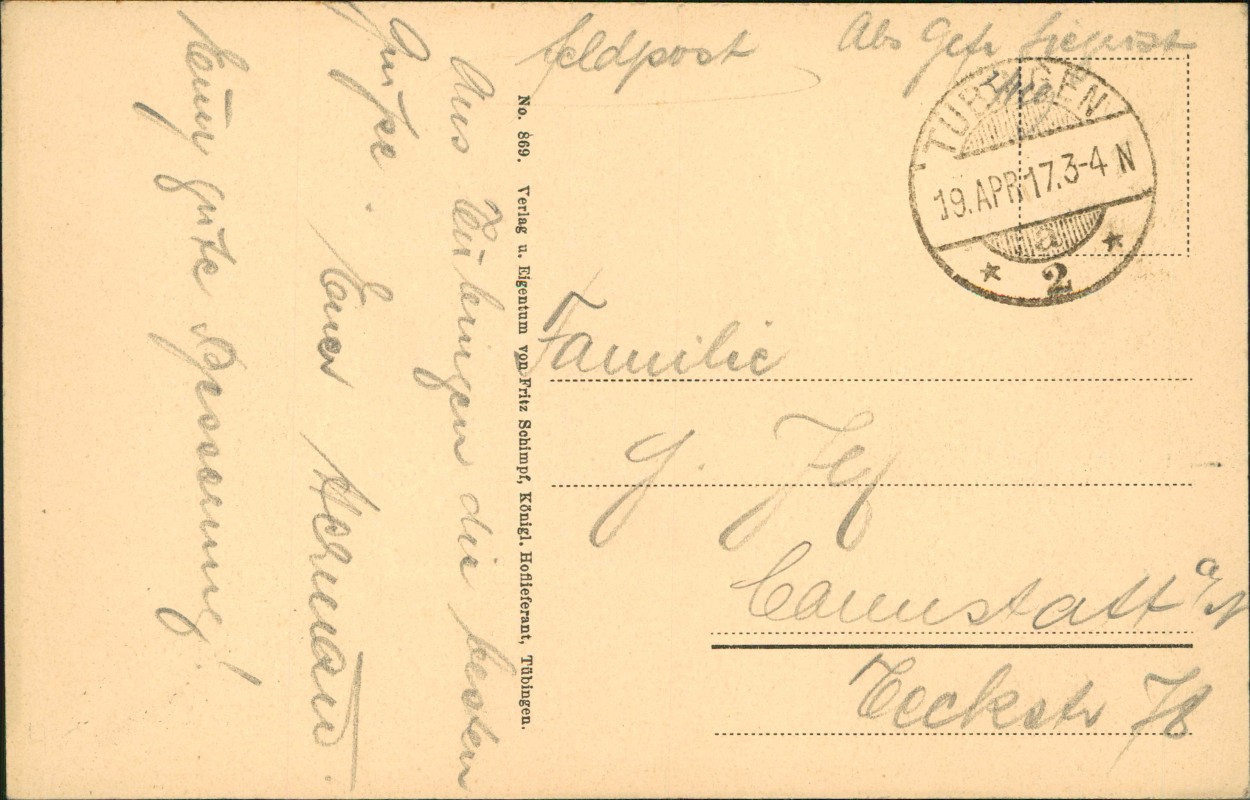 Feldpost
Abs Gefr Siegrist
TÜBINGEN
19.APR17.3-4 N
a
* 2 *
Familie
G. Jlg
Cannstatt a/N
Teckstr 78
No. 869. Verlag u. Eigentum von Fritz Schimpf, Königl. Hoflieferant, Tübingen.
Aus Tübingen die besten
Grüße.
Euer Hermann.
gute Besserung!